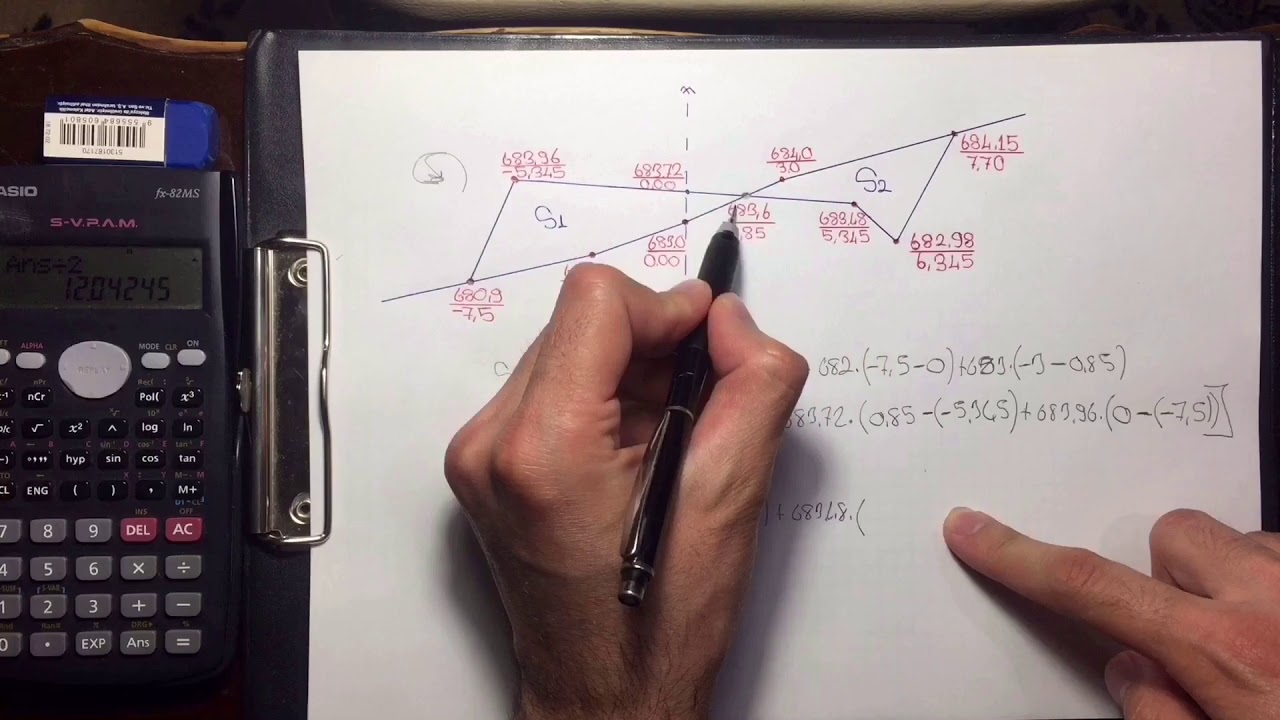 x
683,96
-5,345
683,72
0.00
684,0
3,0
684,15
7,70
S1
S2
683,6
,85
683,48
5,345
682,98
6,345
683,0
0.00
680,9
-7,5
682.(-7,5-0)+683.(-3-0,85)
683,72.(0,85-(-5,345)+683,96.(0-(-7,5))]
)+683,48.(
9 555684 605801
51301187170
CASIO
fx-82MS
S-V.P.A.M.
Ans÷2
12.04245
ALPHA
MODE CLR
ON
REPLAY
nCr
Pol(
x³
x²
^
log
ln
hyp
sin
cos
tan
ENG
(
)
,
M+
7
8
9
DEL
AC
4
5
6
×
÷
1
2
3
+
−
0
.
EXP
Ans
=